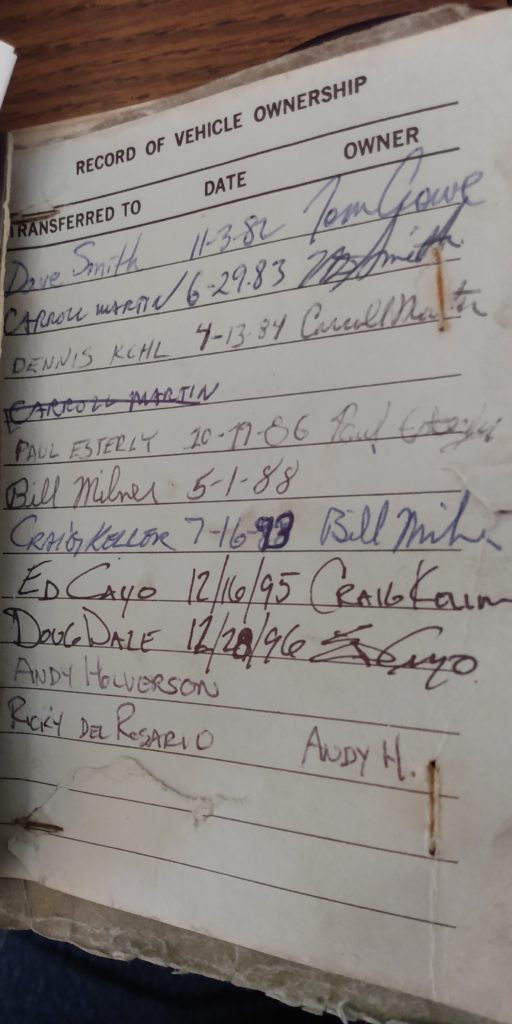 RECORD OF VEHICLE OWNERSHIP
TRANSFERRED TO DATE OWNER
Dave Smith 11-3-82 Tom Crowe
CARROLL MARTIN 6-29-83 Smith
DENNIS KOHL 4-13-84 Carroll Martin
CARROLL MARTIN
PAUL ESTERLY 10-19-86 Paul
Bill Milner 5-1-88
CRAIG KELLER 7-16-93 Bill Milner
ED CAYO 12/16/95 CRAIG
DOUG DALE 12/28/96 Cayo
ANDY HOLVERSON
RICKY DEL ROSARIO ANDY H.